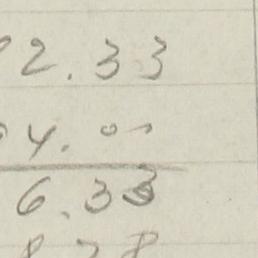 2.33
4.00
6.33